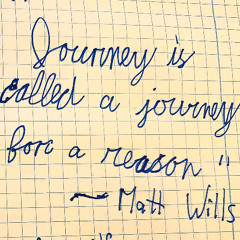 Journey is
called a journey
for a reason "
~ Matt Wills